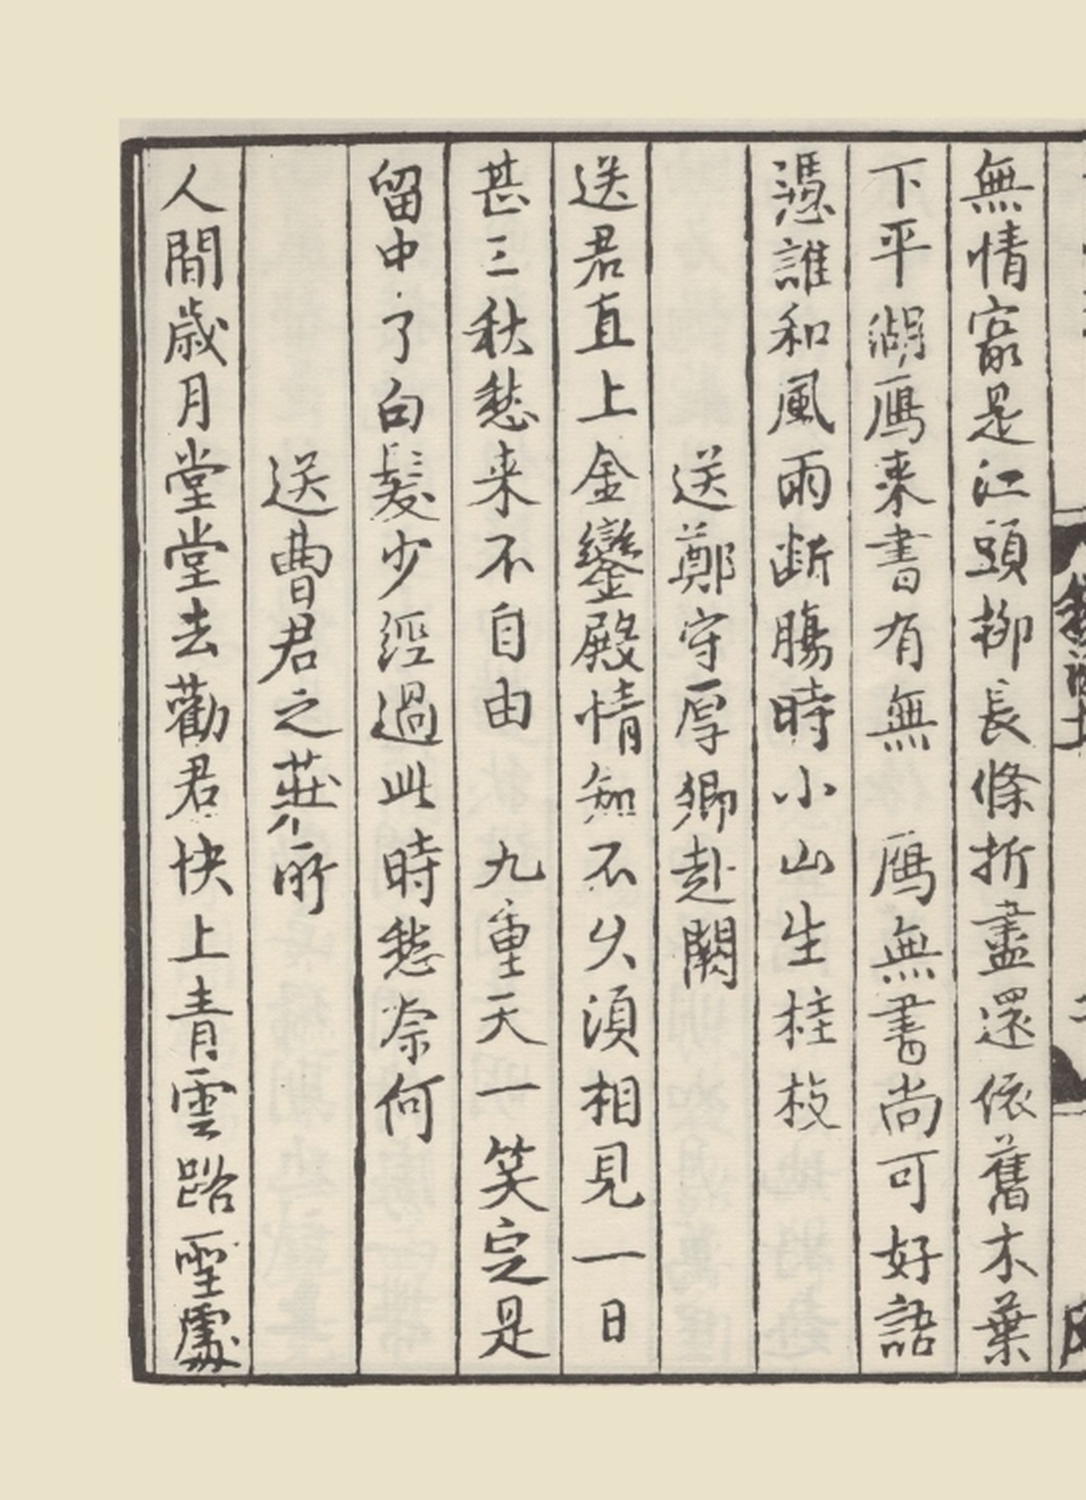 無情寂是江頭栁長條折盡還依舊木葉
下平湖鴈来書有無　鴈無書尚可好語
憑誰和風雨斷腸時小山生桂枝
送鄭守厚卿赴闕
送君直上金鑾殿情知不乆湏相見一日
甚三秋愁来不自由　九重天一笑定是
留中了白髮少經過此時愁奈何
送曹君之莊所
人間歲月堂堂去勸君快上青雲路聖處